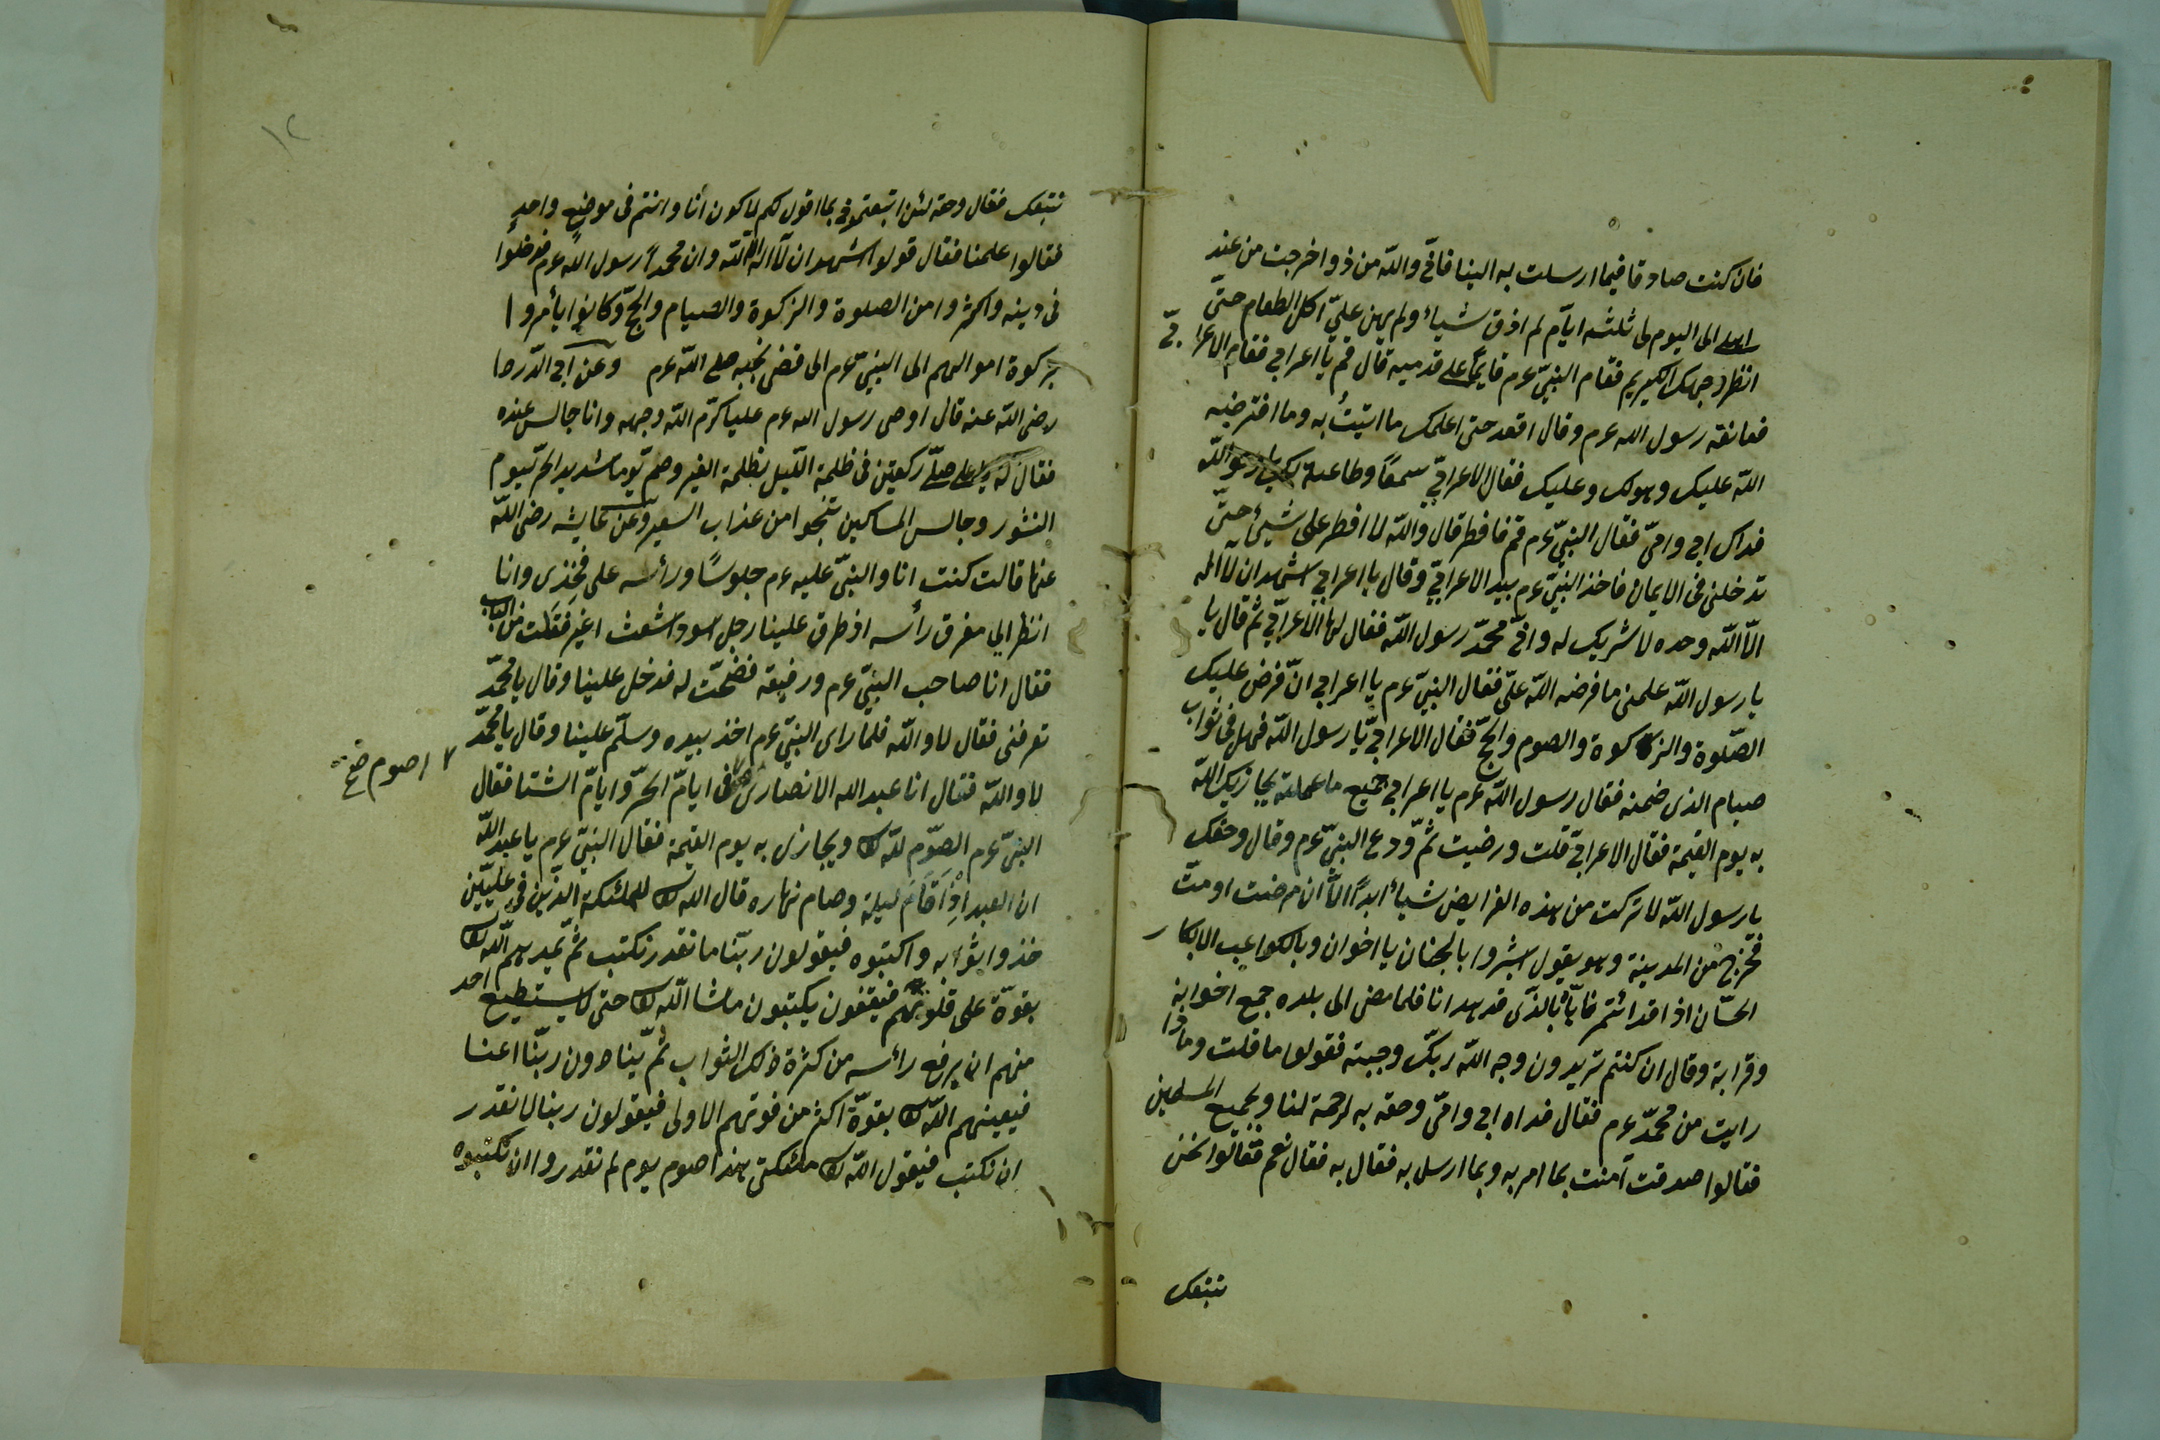 فان كنت صادقا فيما ارسلت به الينا فانّي والله من ذو اخرجت من عند
اهلى الى اليوم لى ثلثه ايّام لم اذق شياء ولم يهن علىّ اكل الطعام حتّى
انظر وجهك الكيريم فقام النبىّ عم قايمًا على قدميه قال قم يا اعرابي فقام الاعرابىّ
فعانقه رسول الله عم وقال اقعد حتى اعلمك ما اتيتُ به وما افترضه
الله عليك وهولك وعليك فقال الاعرابىّ سمعًا وطاعة
فداك ابي وامىّ فقال النبىّ عم قم فافطر قال والله لا افطر على شيئ حتّى
تدخلنى فى الايمان فاخذ النبىّ عم بيد الاعرابىّ وقال يا اعرابي اشهد ان لا اله
الّا الله وحده لا شريك له وانّى محمّد رسول الله فقال لها الاعرابىّ ثم قال يا
يا رسول الله علمنى ما فرضه الله علىّ فقال النبىّ عم يا اعرابي انّ فرض عليك
الصّلوة والزكوة والصوم والحجّ فقال الاعرابىّ يا رسول الله فهل فى ثواب
صيام الذى ضمنه فقال رسول الله عم يا اعرابي جميع ما عملته يجازيك الله
به يوم القيمة فقال الاعرابىّ قلت ورضيت ثمّ ودع النبىّ عم وقال وحقك
يا رسول الله لا تركت من هذه الفرايض شياء ابدًا الّا ان مرضت او متّ
فخرج من المدينة وهو يقول ابشروا بالجنان يا اخوان وبالكواعب الابكار
الحسّان اذا اقدائتم فايّا بالذى قد هدانا فلما مضى الى بلده جمع اخوانه
وقرابة وقال ان كنتم تريدون وجه الله ربّك وجبته فقولوا ما قلت وماذا
رايت من محمّد عم فقال فداه ابي وامىّ وحقه به لرحمة لنا وبجميع المسلمين
فقالوا صدقت آمنت بما امر به وبما ارسل به فقال به فقال نعم فقالوا نحن
نتبعك
١٢
نتبعك فقال وحقه لئن اتبعتمونى بما اقول لكم لا كون أنا وانتم فى موضع واحد
فقالوا علمنا فقال قولوا اشهد ان لا اله الّا الله وان محمداً رسول الله عم فدخلوا
فى دينه واكثروا من الصلوة والزكوة والصيام والحجّ وكانوا يأمروا
بزكوة اموالهم الى النبىّ عم الى قضى نحبه صلى الله عم وعن ابي الدّرداء
رضى الله عنه قال اوصى رسول الله عم عليا كرّم الله وجهه وانا جالس عنده
فقال له يا على صلّ ركعتين فى ظلمة الليل لظلمة القبر وصم يوما شديد الحرّ ليوم
النشور وجالس المساكين تنجوا من عذاب السعير وعن عايشه رضى الله
عنها قالت كنت انا والنبىّ عليه عم جلوسًا ورأسه على فخذى وانا
انظر الي مفرق رأسه اذ طرق علينا رجل اسود اشعث اغبر فقلت من الباب
فقال انا صاحب النبىّ عم ورفيقه ففتحت له فدخل علينا وقال يا محمّد
تعرفنى فقال لا والله فلما راى النبىّ عم اخذ بيده وسلّم علينا وقال يا محمّد
لا والله فقال انا عبد الله الانصارى فى ايام الحرّ وايام الشتا فقال
اصوم صح
النبىّ عم الصّوم لله تع ويجازى به يوم القيمة فقال النبىّ عم يا عبد الله
ان العبد اذا قام ليلة وصام نهاره قال الله تع للملئكة الذين فى عليّين
خذوا ثوابه واكتبوه فيقولون ربّنا ما نقدر نكتب ثمّ يمدّهم الله تع
بقوّة على قلوبهم فيقفون يكتبون ما شا الله تع حتى لا يستطيع احد
منهم ان يرفع رائسه من كثرة ذلك الثواب ثمّ ينادون ربّنا اعنا
فيعينهم الله تع بقوّة اكثر من قوتهم الاولى فيقولون ربنا لا نقدر
ان نكتب فيقول الله تع ملئكتى هذا صوم يوم لم نقدروا ان تكتبوه